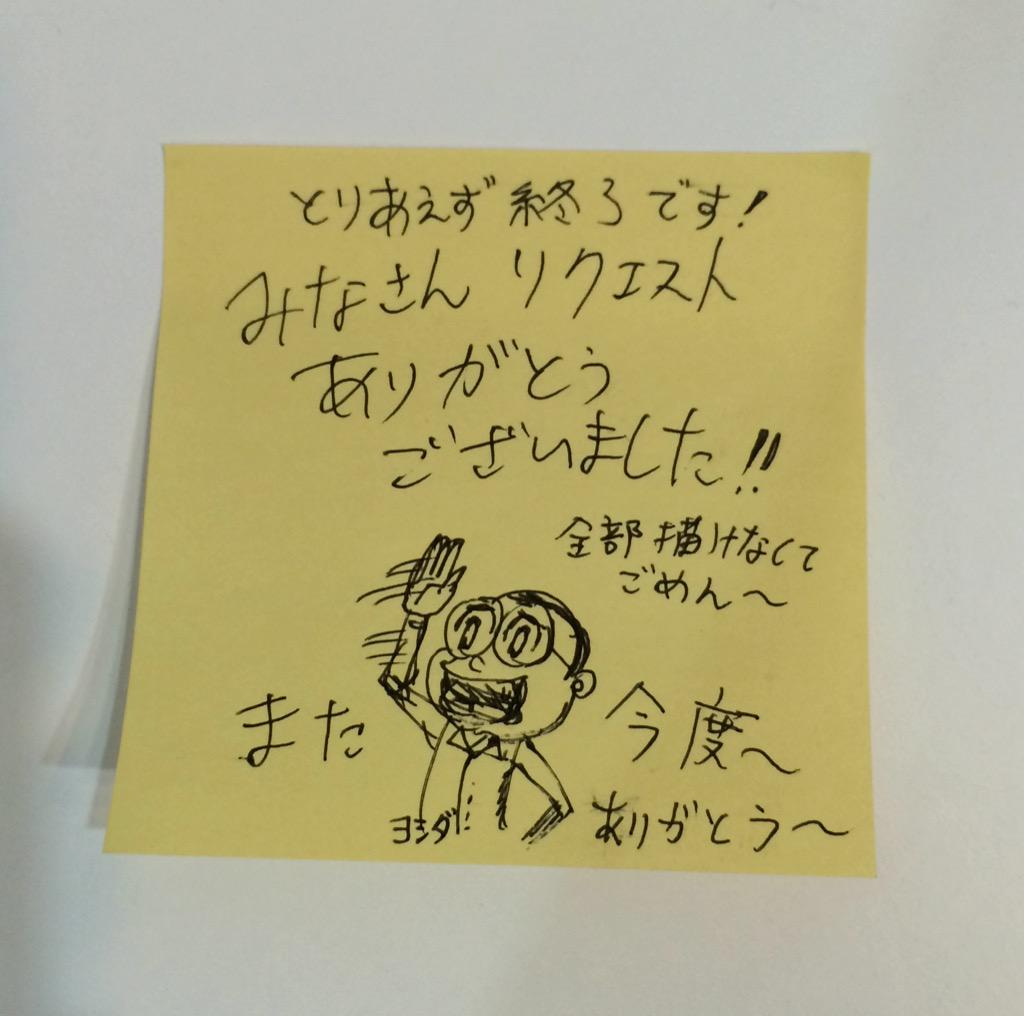 とりあえず終了です!
みなさん リクエスト
ありがとう
ございました!!
全部描けなくて
ごめん～
また 今度～
ヨシダ
ありがとう～